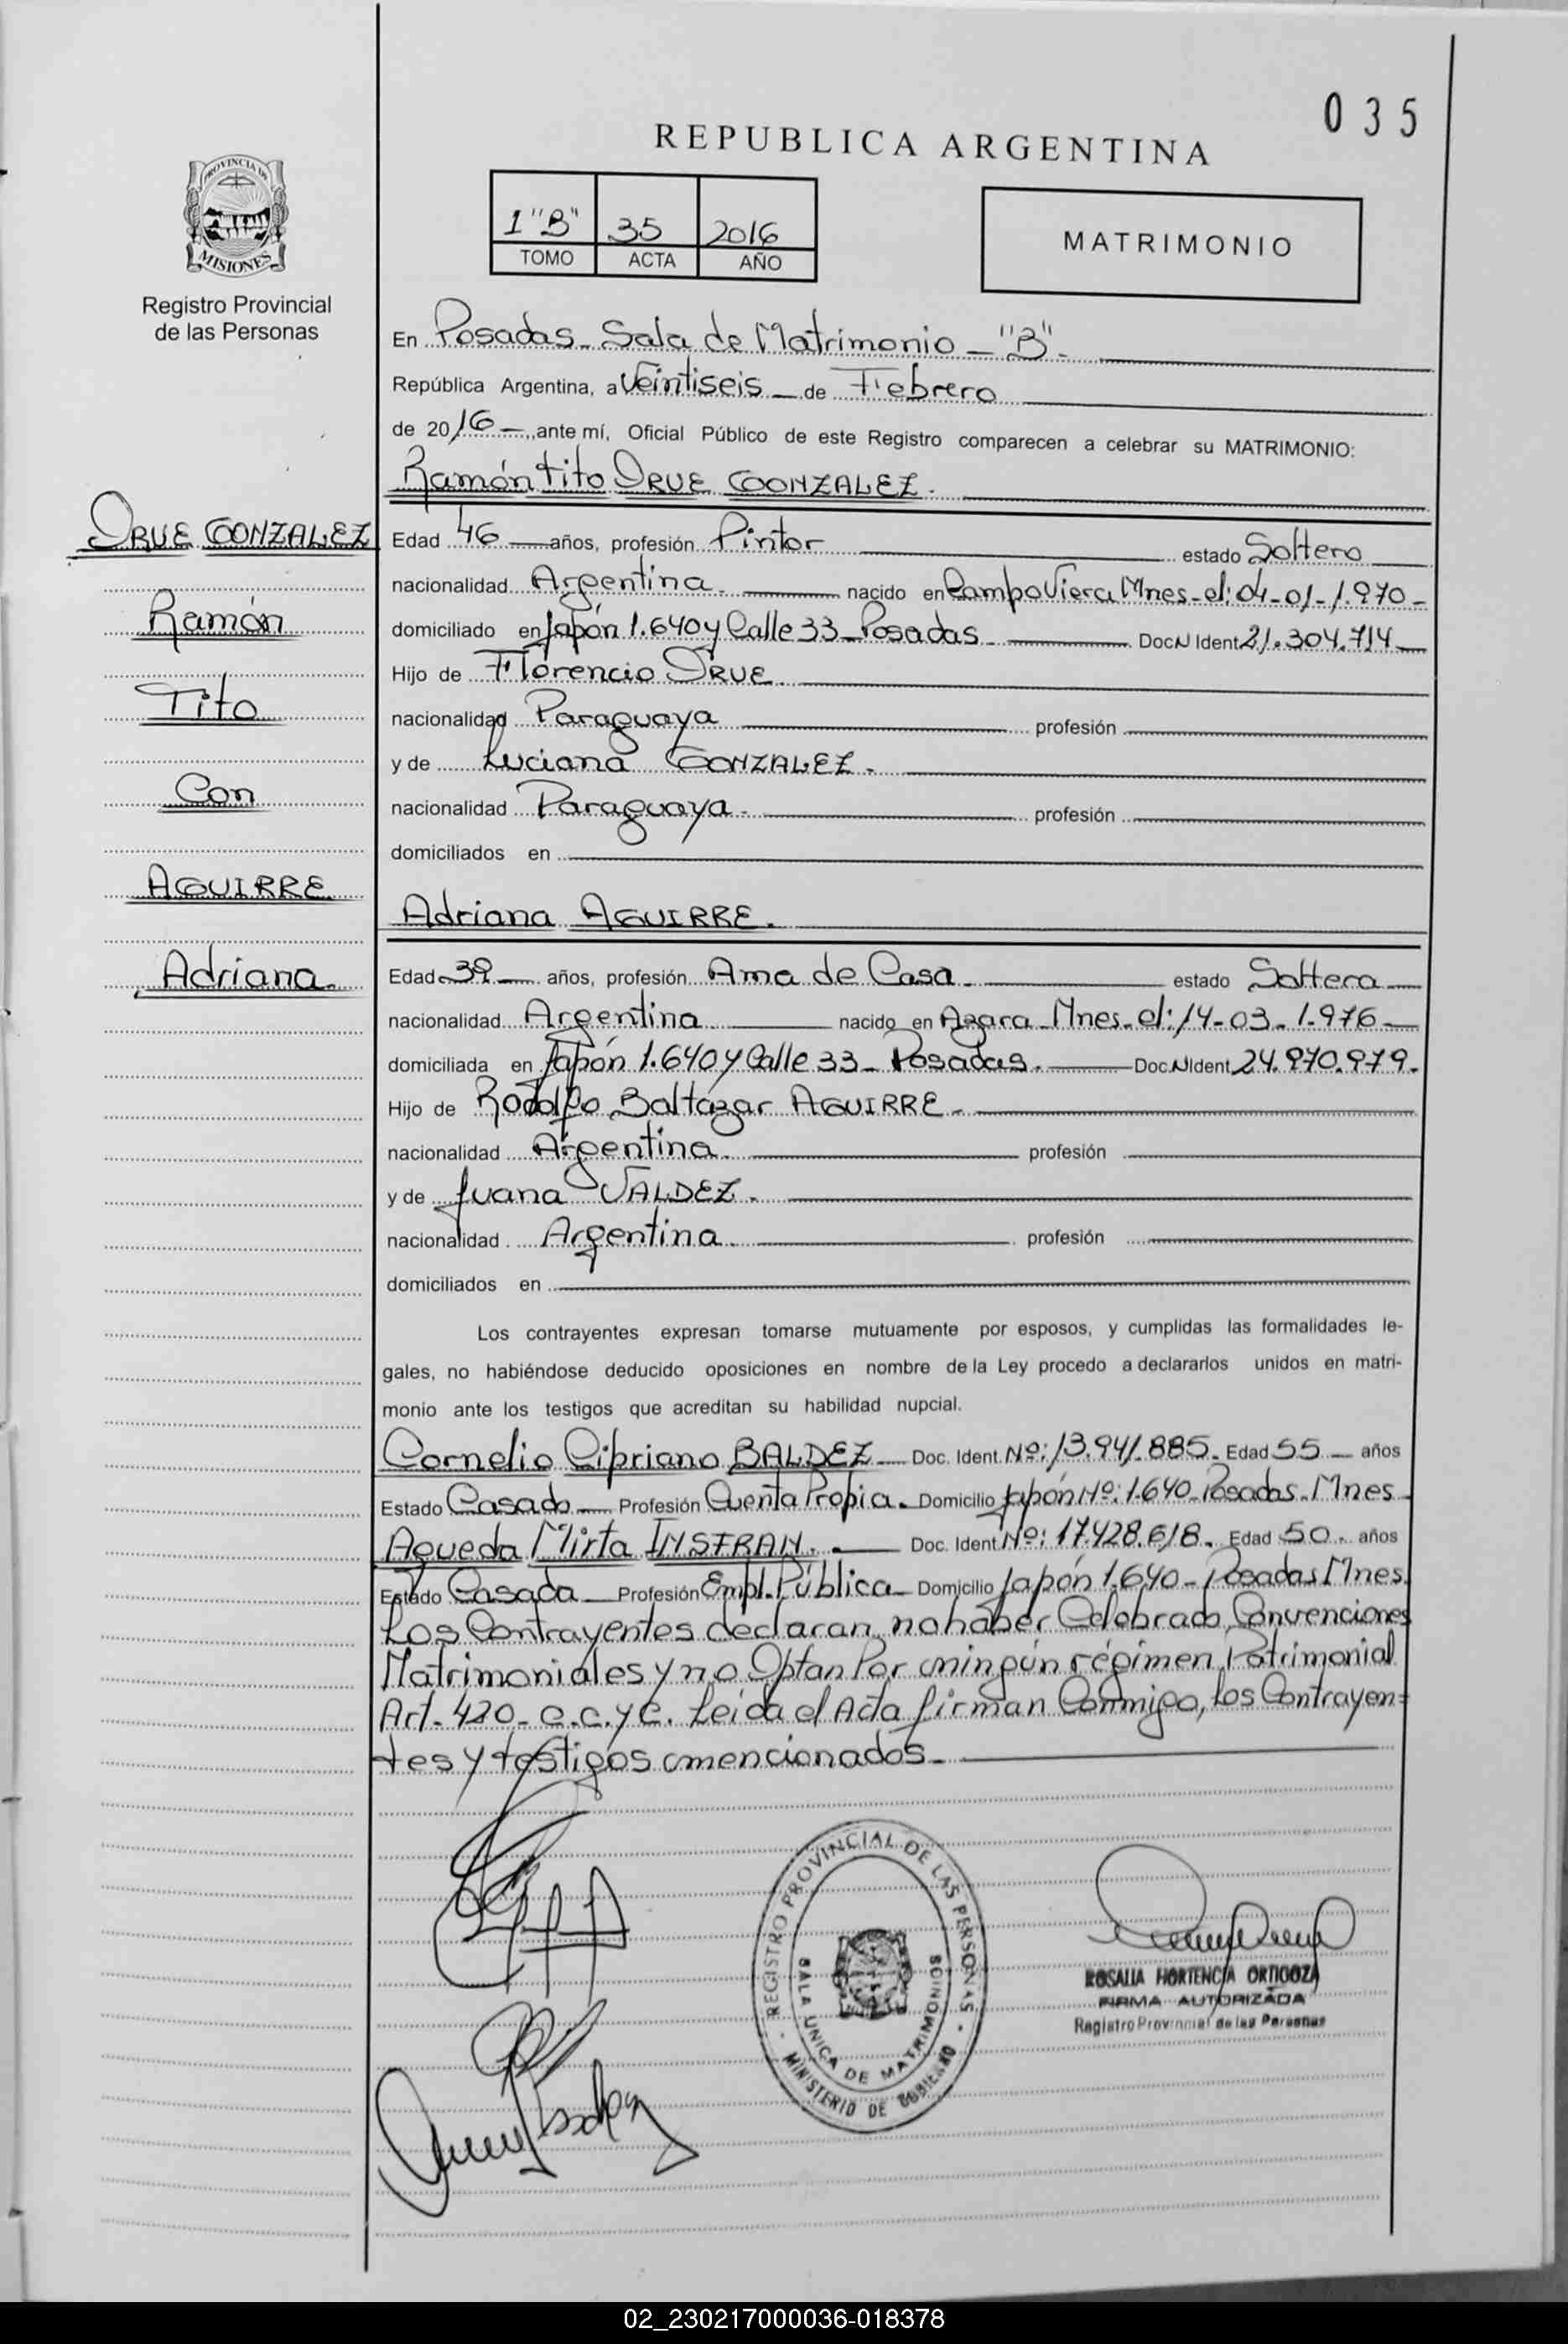 035
REPUBLICA ARGENTINA
1 "B" 35 2016
TOMO ACTA AÑO
MATRIMONIO
PROVINCIA DE
MISIONES
Registro Provincial
de las Personas
En Posadas - Sala de Matrimonio - "B" -
República Argentina, a Veintiseis - de Febrero
de 2016 -, ante mí, Oficial Público de este Registro comparecen a celebrar su MATRIMONIO:
Ramón Tito IRUE GONZALEZ.
IRUE GONZALEZ
Ramón
Tito
Con
AGUIRRE
Adriana.
Edad 46 años, profesión Pintor estado Soltero
nacionalidad Argentina. nacido en Campo Viera Mnes - el: 04-01-1.970-
domiciliado en Japón 1.640 y Calle 33 - Posadas Doc N Ident 21.304.714
Hijo de Florencio IRUE.
nacionalidad Paraguaya profesión
y de Luciana GONZALEZ.
nacionalidad Paraguaya. profesión
domiciliados en
Adriana AGUIRRE.
Edad 39 años, profesión Ama de Casa estado Soltera
nacionalidad Argentina nacido en Azara Mnes - el: 14-03-1.976
domiciliada en Japón 1.640 y Calle 33 - Posadas. Doc N Ident 24.970.979.
Hijo de Rodolfo Baltazar AGUIRRE.
nacionalidad Argentina. profesión
y de Juana VALDEZ.
nacionalidad Argentina. profesión
domiciliados en
Los contrayentes expresan tomarse mutuamente por esposos, y cumplidas las formalidades le-
gales, no habiéndose deducido oposiciones en nombre de la Ley procedo a declararlos unidos en matri-
monio ante los testigos que acreditan su habilidad nupcial.
Cornelio Cipriano BALDEZ Doc. Ident Nº: 13.941.885. Edad 55 años
Estado Casado Profesión Cuenta Propia. Domicilio Japón Nº: 1.640 - Posadas - Mnes
Agueda Mirta INSFRAN. Doc. Ident Nº: 17.428.618. Edad 50. años
Estado Casada Profesión Empl. Pública Domicilio Japón 1.640 - Posadas Mnes.
Los Contrayentes declaran no haber Celebrado Convenciones
Matrimoniales y no Optan Por ningún régimen Patrimonial
Art. 420 - C.C. y C. Leida el Acta firman Conmigo, los Contrayen-
tes y testigos mencionados.
REGISTRO PROVINCIAL DE LAS PERSONAS
SALA UNICA DE MATRIMONIOS
MINISTERIO DE GOBIERNO
ROSALIA HORTENCIA ORTIGOZA
FIRMA AUTORIZADA
Registro Provincial de las Personas
02_230217000036-018378